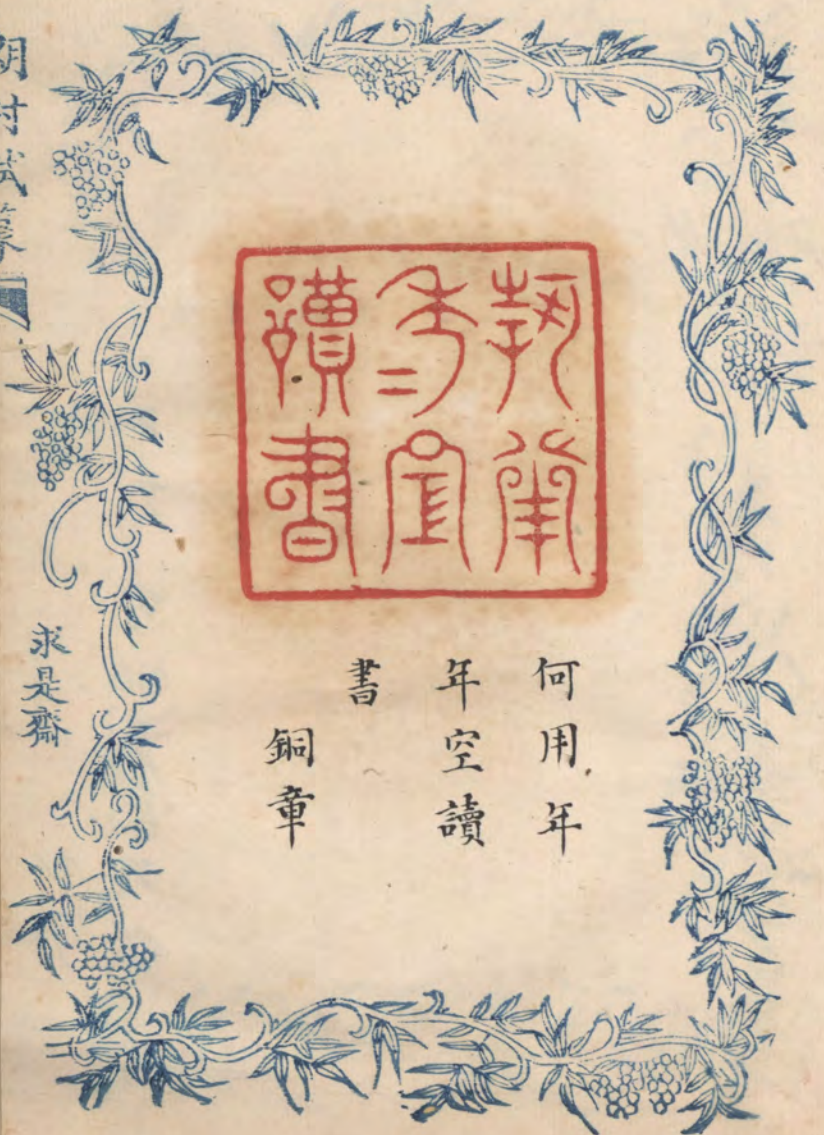 何用
年〻空
讀書
何用年
年空讀
書
銅章
求是齋